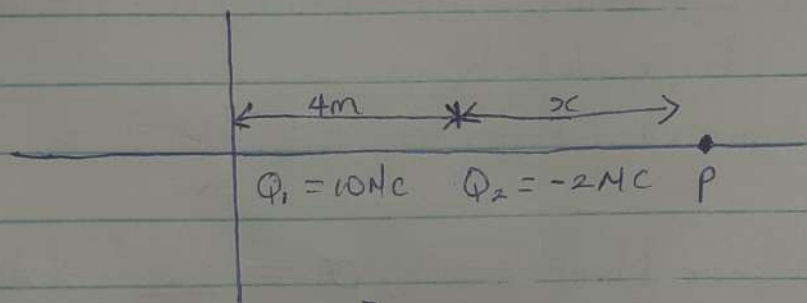 4m x
Q₁ = 10μC Q₂ = -2μC P